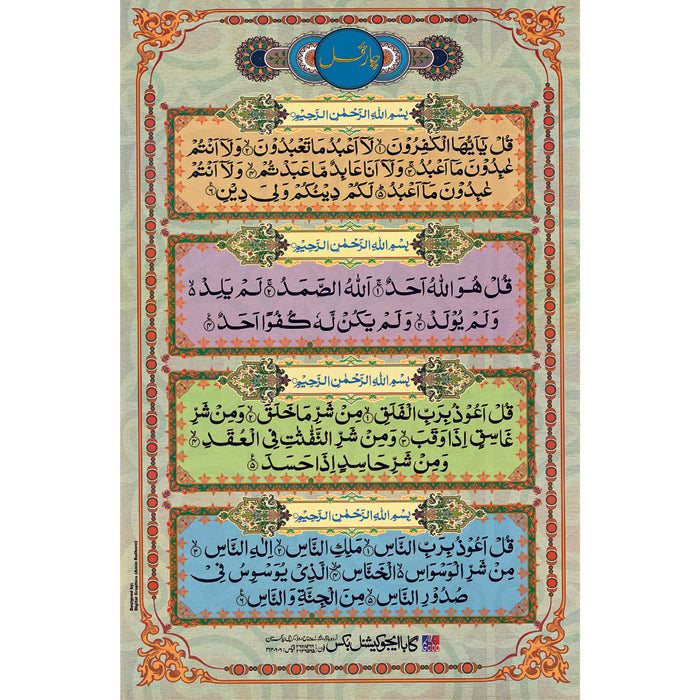 چار قل
بِسْمِ اللهِ الرَّحْمٰنِ الرَّحِيْمِ
قُلْ يٰۤاَيُّهَا الْكٰفِرُوْنَ ۙ‏﴿۱﴾ لَاۤ اَعْبُدُ مَا تَعْبُدُوْنَ ۙ‏﴿۲﴾ وَلَاۤ اَنْتُمْ
عٰبِدُوْنَ مَاۤ اَعْبُدُ ۚ‏﴿۳﴾ وَلَاۤ اَنَا عَابِدٌ مَّا عَبَدْتُّمْ ۙ‏﴿۴﴾ وَلَاۤ اَنْتُمْ
عٰبِدُوْنَ مَاۤ اَعْبُدُ ؕ‏﴿۵﴾ لَكُمْ دِيْنُكُمْ وَلِىَ دِيْنِ ‏﴿۶﴾
بِسْمِ اللهِ الرَّحْمٰنِ الرَّحِيْمِ
قُلْ هُوَ اللهُ اَحَدٌ ۚ‏﴿۱﴾ اَللهُ الصَّمَدُ ۚ‏﴿۲﴾ لَمْ يَلِدْ ۙ
وَلَمْ يُوْلَدْ ۙ‏﴿۳﴾ وَلَمْ يَكُنْ لَّهٗ كُفُوًا اَحَدٌ ‏﴿۴﴾
بِسْمِ اللهِ الرَّحْمٰنِ الرَّحِيْمِ
قُلْ اَعُوْذُ بِرَبِّ الْفَلَقِ ۙ‏﴿۱﴾ مِنْ شَرِّ مَا خَلَقَ ۙ‏﴿۲﴾ وَمِنْ شَرِّ
غَاسِقٍ اِذَا وَقَبَ ۙ‏﴿۳﴾ وَمِنْ شَرِّ النَّفّٰثٰتِ فِى الْعُقَدِ ۙ‏﴿۴﴾
وَمِنْ شَرِّ حَاسِدٍ اِذَا حَسَدَ ‏﴿۵﴾
بِسْمِ اللهِ الرَّحْمٰنِ الرَّحِيْمِ
قُلْ اَعُوْذُ بِرَبِّ النَّاسِ ۙ‏﴿۱﴾ مَلِكِ النَّاسِ ۙ‏﴿۲﴾ اِلٰهِ النَّاسِ ۙ‏﴿۳﴾
مِنْ شَرِّ الْوَسْوَاسِ ۙ الْخَنَّاسِ ۙ‏﴿۴﴾ الَّذِىْ يُوَسْوِسُ فِىْ
صُدُوْرِ النَّاسِ ۙ‏﴿۵﴾ مِنَ الْجِنَّةِ وَالنَّاسِ ‏﴿۶﴾
گابا ایجوکیشنل بکس
Gaba
Designed by:
Digital Graphics (Amin Rathore)